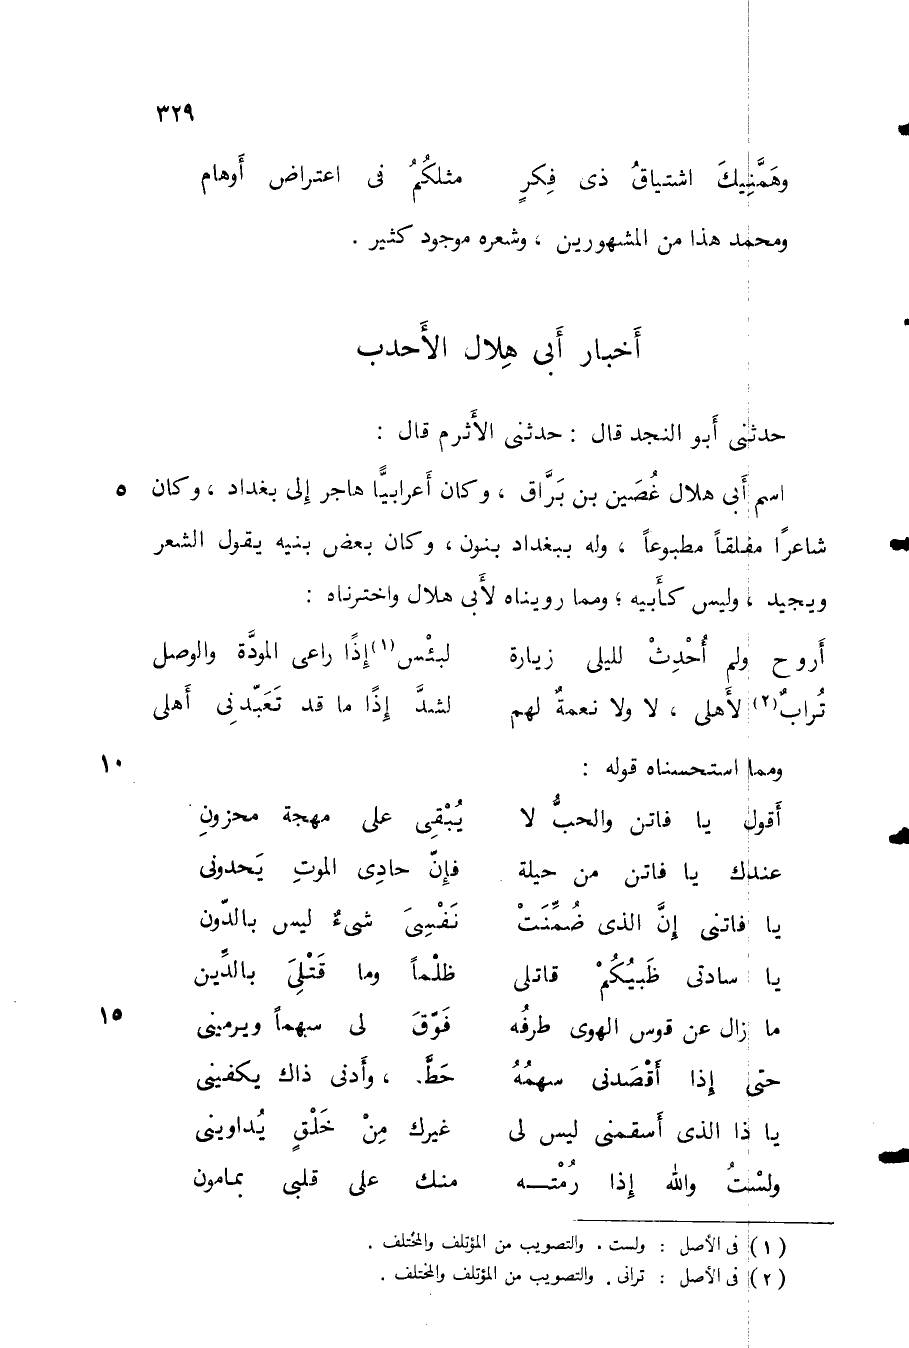 ٣٢٩
وهَمَّنِيكَ اشتياقُ ذى فِكرٍ مثلكُمُ فى اعتراض أَوهام
ومحمد هذا من المشهورين ، وشعره موجود كثير .
أَخبار أَبى هِلال الأَحدب
حدثنى أَبو النجد قال : حدثنى الأَثرم قال :
اسم أَبى هلال غُصَين بن بَرَّاق ، وكان أَعرابيًّا هاجر إلى بغداد ، وكان ٥
شاعرًا مفلقاً مطبوعاً ، وله ببغداد بنون ، وكان بعض بنيه يقول الشعر
ويجيد ، وليس كأَبيه ؛ ومما رويناه لأَبى هلال واخترناه :
أَروح ولم أُحْدِثْ لليلى زيارة لبئْس(١) إذًا راعى المودَّة والوصل
تُرابٌ(٢) لأَهلى ، لا ولا نعمةٌ لهم لشدَّ إذًا ما قد تَعَبّدنِى أَهلى
ومما استحسناه قوله : ١٠
أَقول يا فاتن والحبُّ لا يُبْقِى على مهجة محزونِ
عندك يا فاتن من حيلة فإنّ حادِى الموتِ يَحدونى
يا فاتنى إنَّ الذى ضُمِّنَتْ نَفْسِىَ شىءٌ ليس بالدّون
يا سادتى ظَبيُكُمْ قاتلى ظلْماً وما قَتْلِىَ بالدِّين
ما زال عن قوس الهوى طرفُه فَوّقَ لى سهماً ويرمينى ١٥
حتى إذا أَقْصَدنى سهمُهُ حَطَّ ، وأَدنى ذاك يكفينى
يا ذا الذى أَسقمنى ليس لى غيرك مِنْ خَلْقٍ يُداوينى
ولسْتُ والله إذا رُمْتـــه منك على قلبى بمامون
(١) فى الأصل : ولست . والتصويب من المؤتلف والمختلف .
(٢) فى الأصل : ترانى . والتصويب من المؤتلف والمختلف .